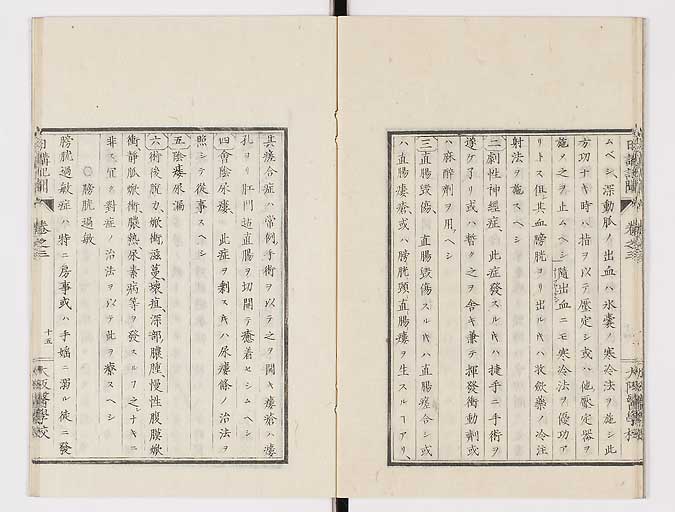 ムベシ、深動脈ノ出血ハ氷嚢ノ寒冷法ヲ施シ此
方功ナキ時ハ指ヲ以テ壓定シ或ハ他壓定器ヲ
施ノ之ヲ止ムヘシ隨出血ニモ寒冷法ヲ優功ア
リトス但其血膀胱ヨリ出ルキハ收斂藥ノ冷注
射法ヲ施スヘシ
二劇性神經症 此症發スルキハ捷手ニ手術ヲ
遂ケ了リ或ハ暫ク之ヲ舍キ兼テ揮發衝動劑或
ハ麻醉劑ヲ用ヘシ
三直腸毀傷 直腸毀傷スルキハ直腸瘡合シ或
ハ直腸瘻瘡、或ハ膀胱頸直腸瘻ヲ生スルヿアリ、
其瘡合症ハ常例手術ヲ以テ之ヲ開キ瘻瘡ハ瘻
孔ヨリ肛門迄直腸ヲ切開テ癒着セシムヘシ
四會陰尿瘻、此症ヲ剩スキハ尿瘻條ノ治法ヲ
照シテ從事スヘシ
五陰瘻尿漏
六術後脫力、焮衝滋蔓、壞疽、深部膿腫、慢性腹膜焮
衝靜脈焮衝膿熱、尿素病等ヲ發スルヿ之ナキニ
非ス冝ク對症ノ治法ヲ以テ此ヲ療スヘシ
○膀胱過敏
膀胱過敏症ハ特ニ房事或ハ手婬ニ溺ル徒ニ發
日講記聞
卷之三
十五
大阪醫學校